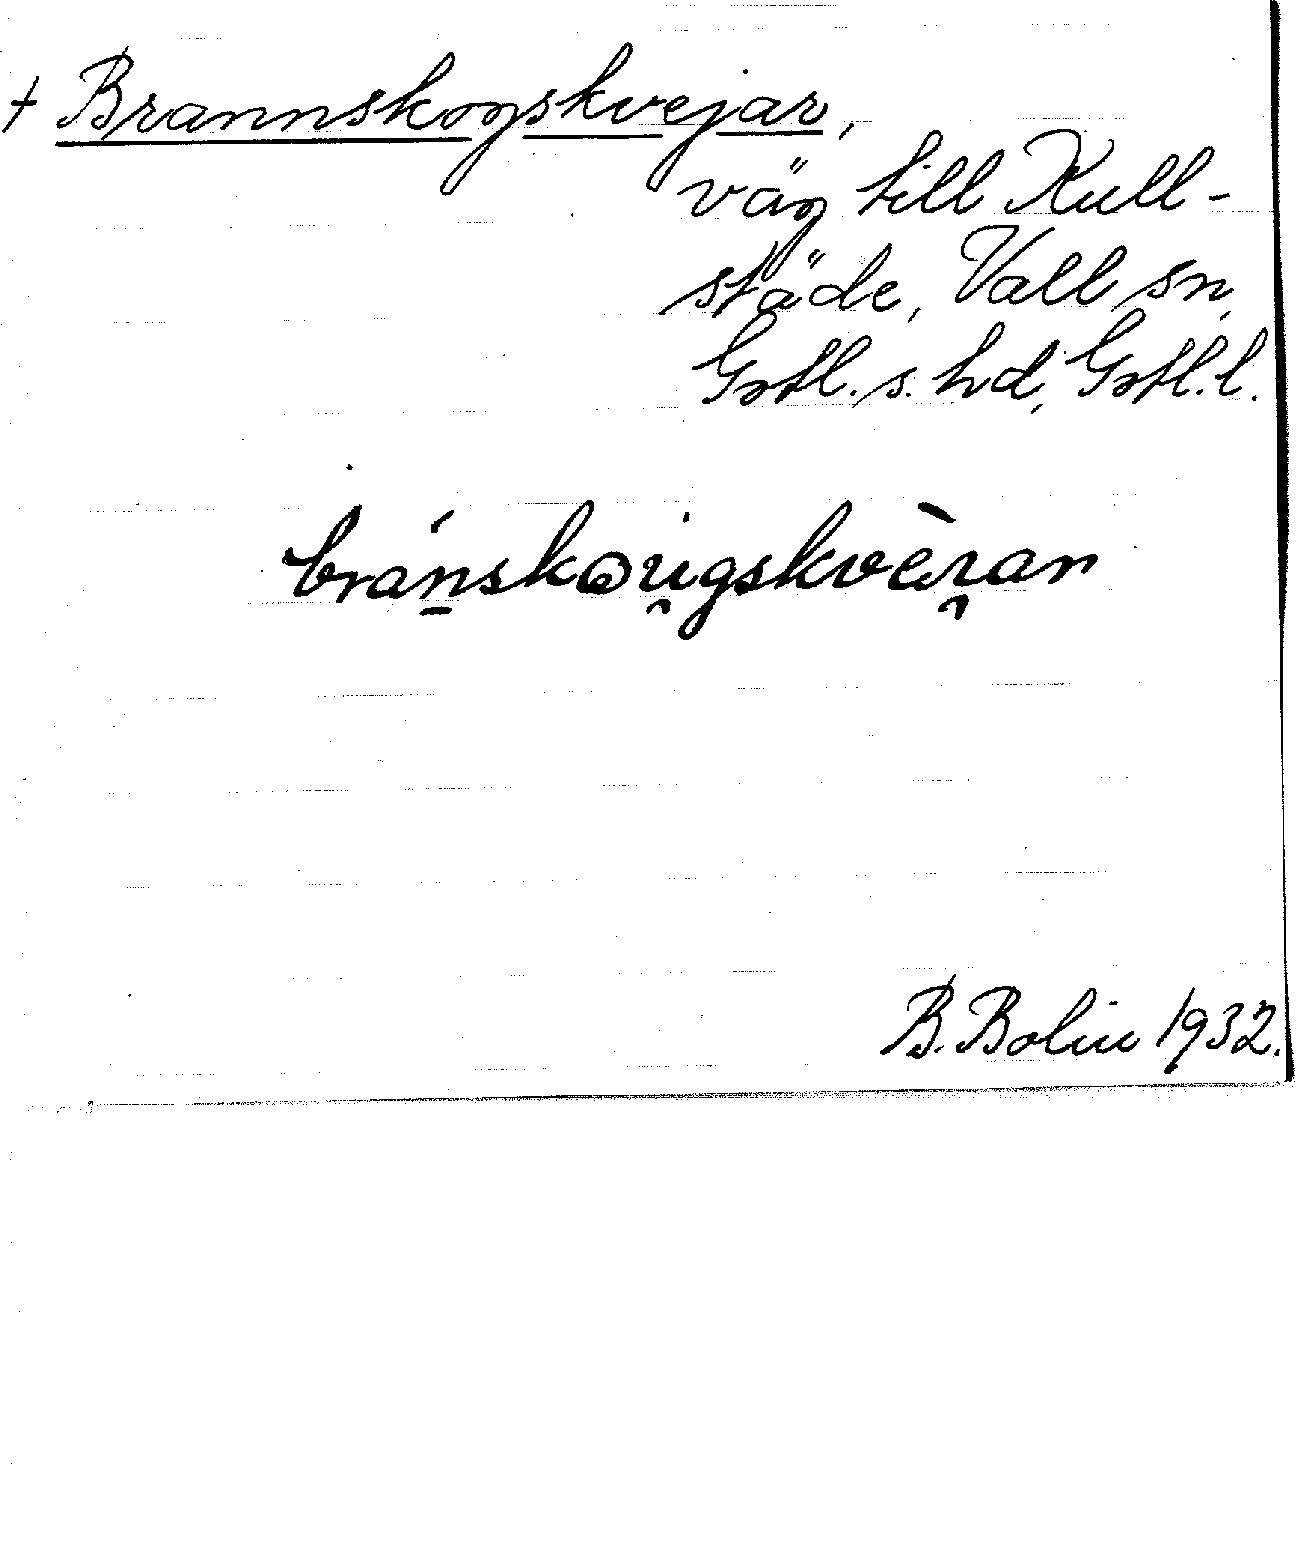 + Brannskogskvejar,
väg till Kull-
städe, Vall sn,
Gotl. s. hd, Gotl. l.
B. Bolin 1932.